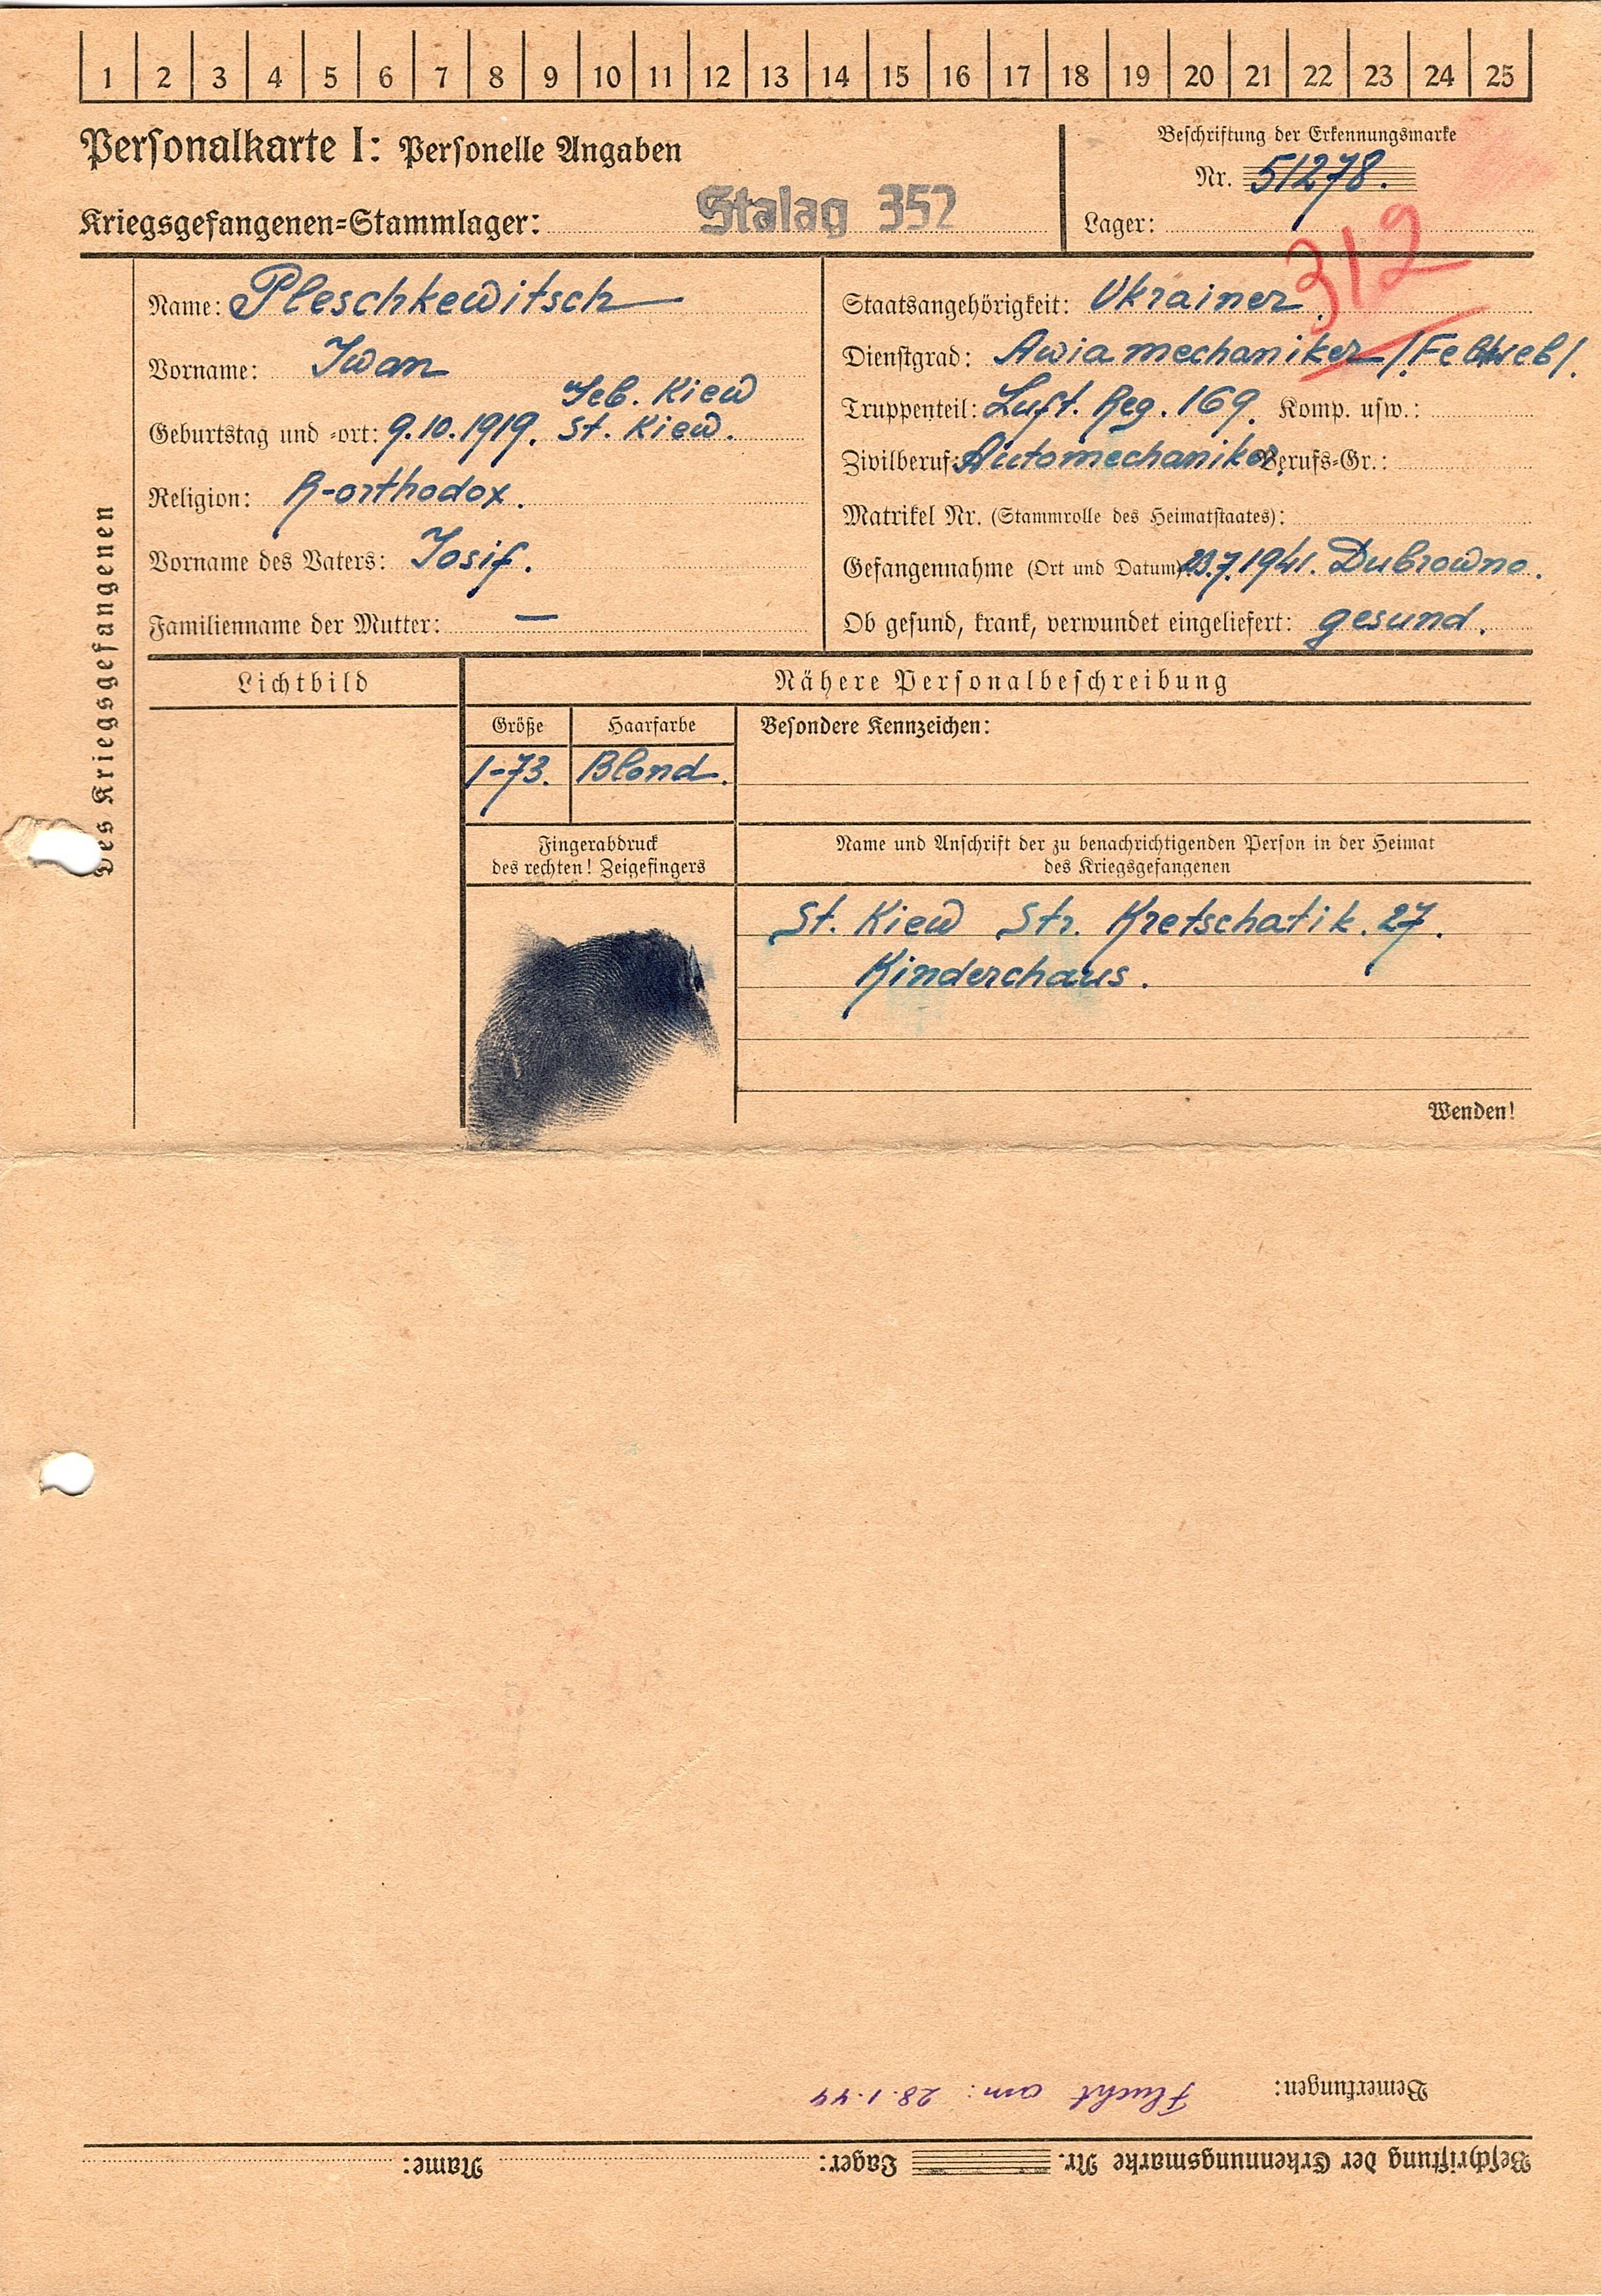 1 2 3 4 5 6 7 8 9 10 11 12 13 14 15 16 17 18 19 20 21 22 23 24 25
Personalkarte I: Personelle Angaben
Kriegsgefangenen=Stammlager: Stalag 352
Beschriftung der Erkennungsmarke
Nr. 51278.
Lager:
312
Des Kriegsgefangenen
Name: Pleschkewitsch
Vorname: Iwan
Geb. Kiew
Geburtstag und =ort: 9.10.1919. St. Kiew.
Religion: R-orthodox.
Vorname des Vaters: Iosif.
Familienname der Mutter: —
Staatsangehörigkeit: Ukrainer.
Dienstgrad: Awiamechaniker /
Truppenteil: Luft. Reg. 169. Komp. usw.:
Zivilberuf: Automechaniker. Berufs=Gr.:
Matrikel Nr. (Stammrolle des Heimatstaates):
Gefangennahme (Ort und Datum): 23.7.1941. Dubrowno.
Ob gesund, krank, verwundet eingeliefert: gesund.
Lichtbild
Nähere Personalbeschreibung
Größe Haarfarbe Besondere Kennzeichen:
1-73. Blond.
Fingerabdruck
des rechten! Zeigefingers
Name und Anschrift der zu benachrichtigenden Person in der Heimat
des Kriegsgefangenen
St. Kiew Str. Kretschatik. 27.
Kinderchaus.
Wenden!
Beschriftung der Erkennungsmarke Nr. Lager: Name:
Bemerkungen: Flucht am: 28.1.44